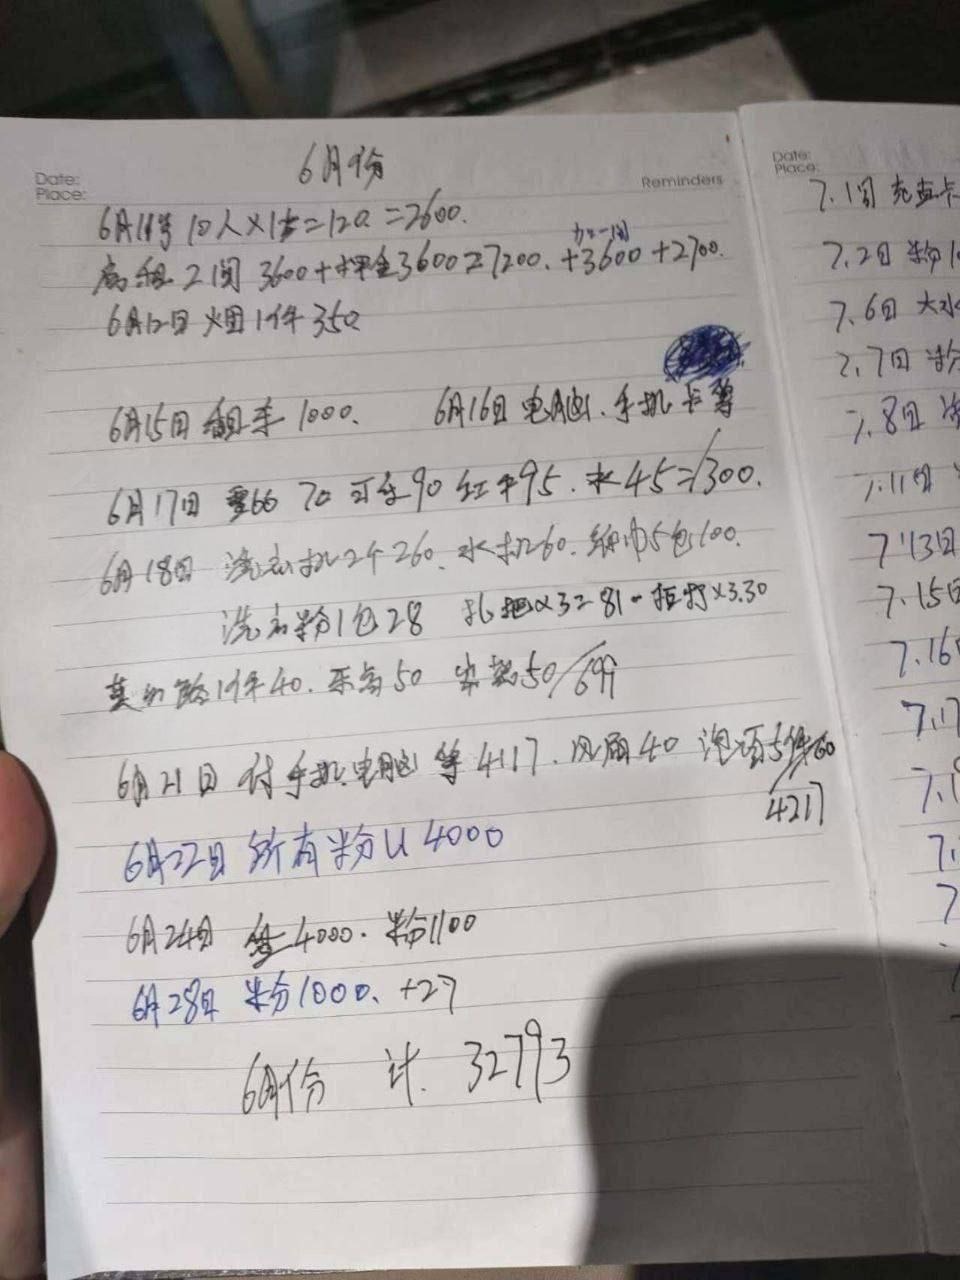 Date:
Place:
6月份
Reminders
6月11号 10人×1 =120 =2600.
房租 2间 3600+押金3600=7200. +3600 +2700.
加一间
6月12日 烟1件350
6月15日 租车 1000. 6月16日 电脑、手机卡等
6月17日 66 70 可乐90 红牛95. 水45=/300.
6月18日 洗衣机2个260. 水机60. 纸巾5包100.
洗衣粉1包28 扎把×3=81 ×3.30
1件40. 50 50/699
6月21日 付手机电脑等4117. 风扇40 泡面5件60
/4217
6月22日 所有粉U 4000
6月24日 4000. 粉1100
6月28日 粉1000. +27
6月份 计. 32793
Date:
Place:
7.1日 充 卡
7.2日 粉10
7.6日 大水
7.7日 粉
7.8日
7.11日
7.13日
7.15日
7.16
7.17
7.1
7.
7